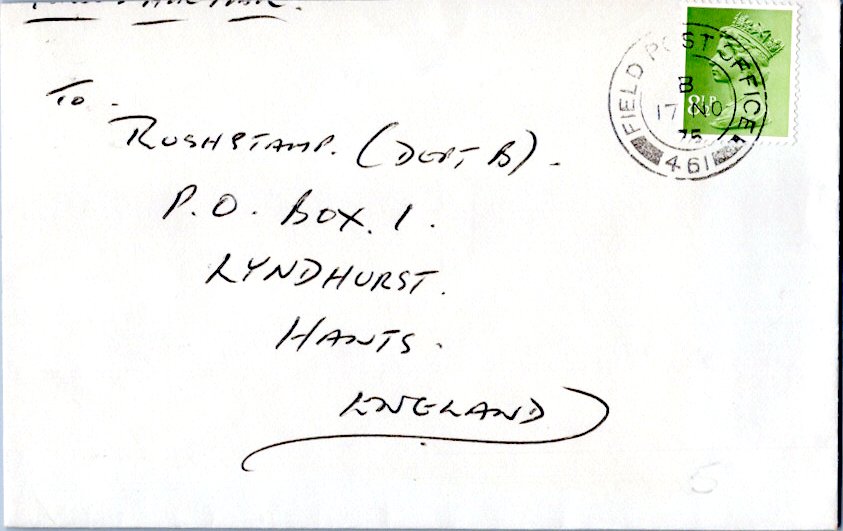 To.
RUSHSTAMP. (DEPT B).
P.O. BOX. 1.
LYNDHURST.
HANTS.
ENGLAND
FIELD POST OFFICE
B
17 NO
75
461
8½P